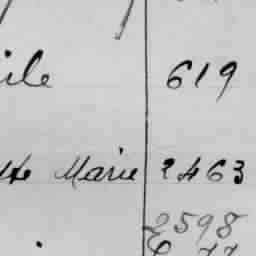 ile 619
tte Marie 2463
2598